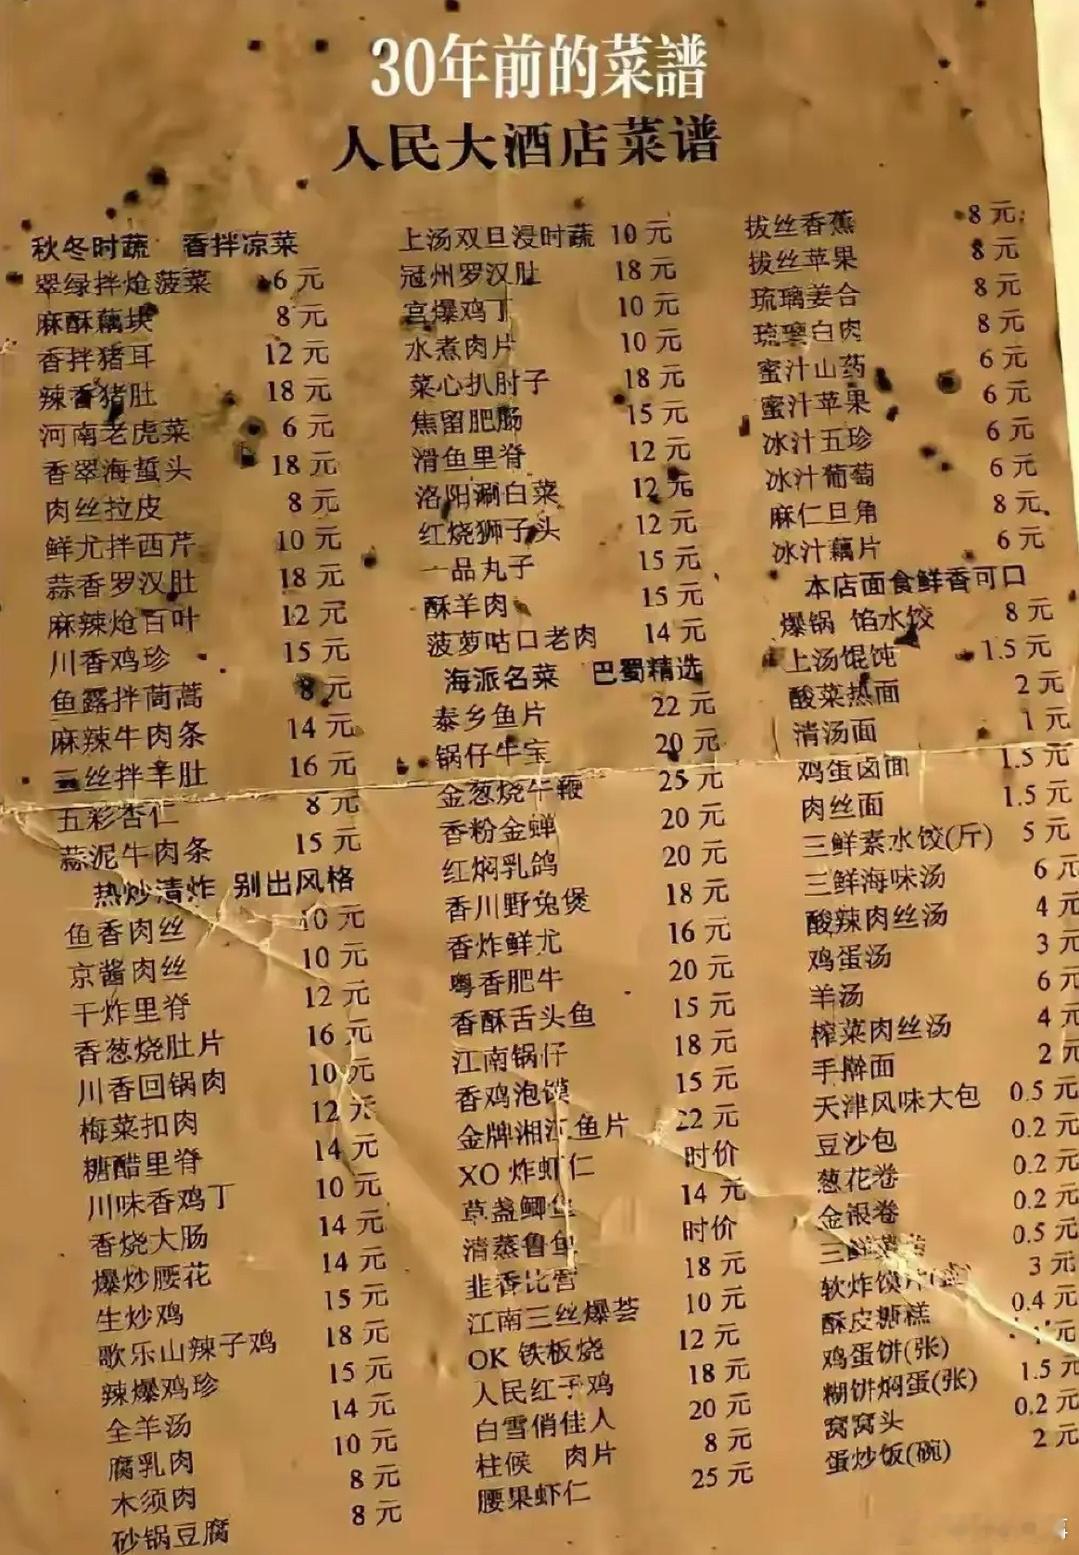 30年前的菜譜
人民大酒店菜谱
秋冬时蔬 香拌凉菜
翠绿拌炝菠菜 6元
麻酥藕块 8元
香拌猪耳 12元
辣香猪肚 18元
河南老虎菜 6元
香翠海蜇头 18元
肉丝拉皮 8元
鲜尤拌西芹 10元
蒜香罗汉肚 18元
麻辣炝百叶 12元
川香鸡珍 15元
鱼露拌茼蒿 8元
麻辣牛肉条 14元
三丝拌羊肚 16元
五彩杏仁 8元
蒜泥牛肉条 15元
热炒清炸 别出风格
鱼香肉丝 10元
京酱肉丝 10元
干炸里脊 12元
香葱烧肚片 16元
川香回锅肉 10元
梅菜扣肉 12元
糖醋里脊 14元
川味香鸡丁 10元
香烧大肠 14元
爆炒腰花 14元
生炒鸡 15元
歌乐山辣子鸡 18元
辣爆鸡珍 15元
全羊汤 14元
腐乳肉 10元
木须肉 8元
砂锅豆腐 8元
上汤双旦浸时蔬 10元
冠州罗汉肚 18元
宫爆鸡丁 10元
水煮肉片 10元
菜心扒肘子 18元
焦留肥肠 15元
滑鱼里脊 12元
洛阳涮白菜 12元
红烧狮子头 12元
一品丸子 15元
酥羊肉 15元
菠萝咕口老肉 14元
海派名菜 巴蜀精选
泰乡鱼片 22元
锅仔牛宝 20元
金葱烧牛鞭 25元
香粉金蝉 20元
红焖乳鸽 20元
香川野兔煲 18元
香炸鲜尤 16元
粤香肥牛 20元
香酥舌头鱼 15元
江南锅仔 18元
香鸡泡馍 15元
金牌湘江鱼片 22元
XO 炸虾仁 时价
草盏鲫鱼 14元
清蒸鲁鱼 时价
韭香比管 18元
江南三丝爆荟 10元
OK 铁板烧 12元
人民红子鸡 18元
白雪俏佳人 20元
柱候 肉片 8元
腰果虾仁 25元
拔丝香蕉 8元
拔丝苹果 8元
琉璃姜合 8元
琉璃白肉 8元
蜜汁山药 6元
蜜汁苹果 6元
冰汁五珍 6元
冰汁葡萄 6元
麻仁旦角 8元
冰汁藕片 6元
本店面食鲜香可口
爆锅 馅水饺 8元
上汤馄饨 1.5元
酸菜热面 2元
清汤面 1元
鸡蛋卤面 1.5元
肉丝面 1.5元
三鲜素水饺(斤) 5元
三鲜海味汤 6元
酸辣肉丝汤 4元
鸡蛋汤 3元
羊汤 6元
榨菜肉丝汤 4元
手擀面 2元
天津风味大包 0.5元
豆沙包 0.2元
葱花卷 0.2元
金银卷 0.2元
三鲜 0.5元
软炸馍片 3元
酥皮糖糕 0.4元
鸡蛋饼(张)
糊饼焖蛋(张) 1.5元
窝窝头 0.2元
蛋炒饭(碗) 2元